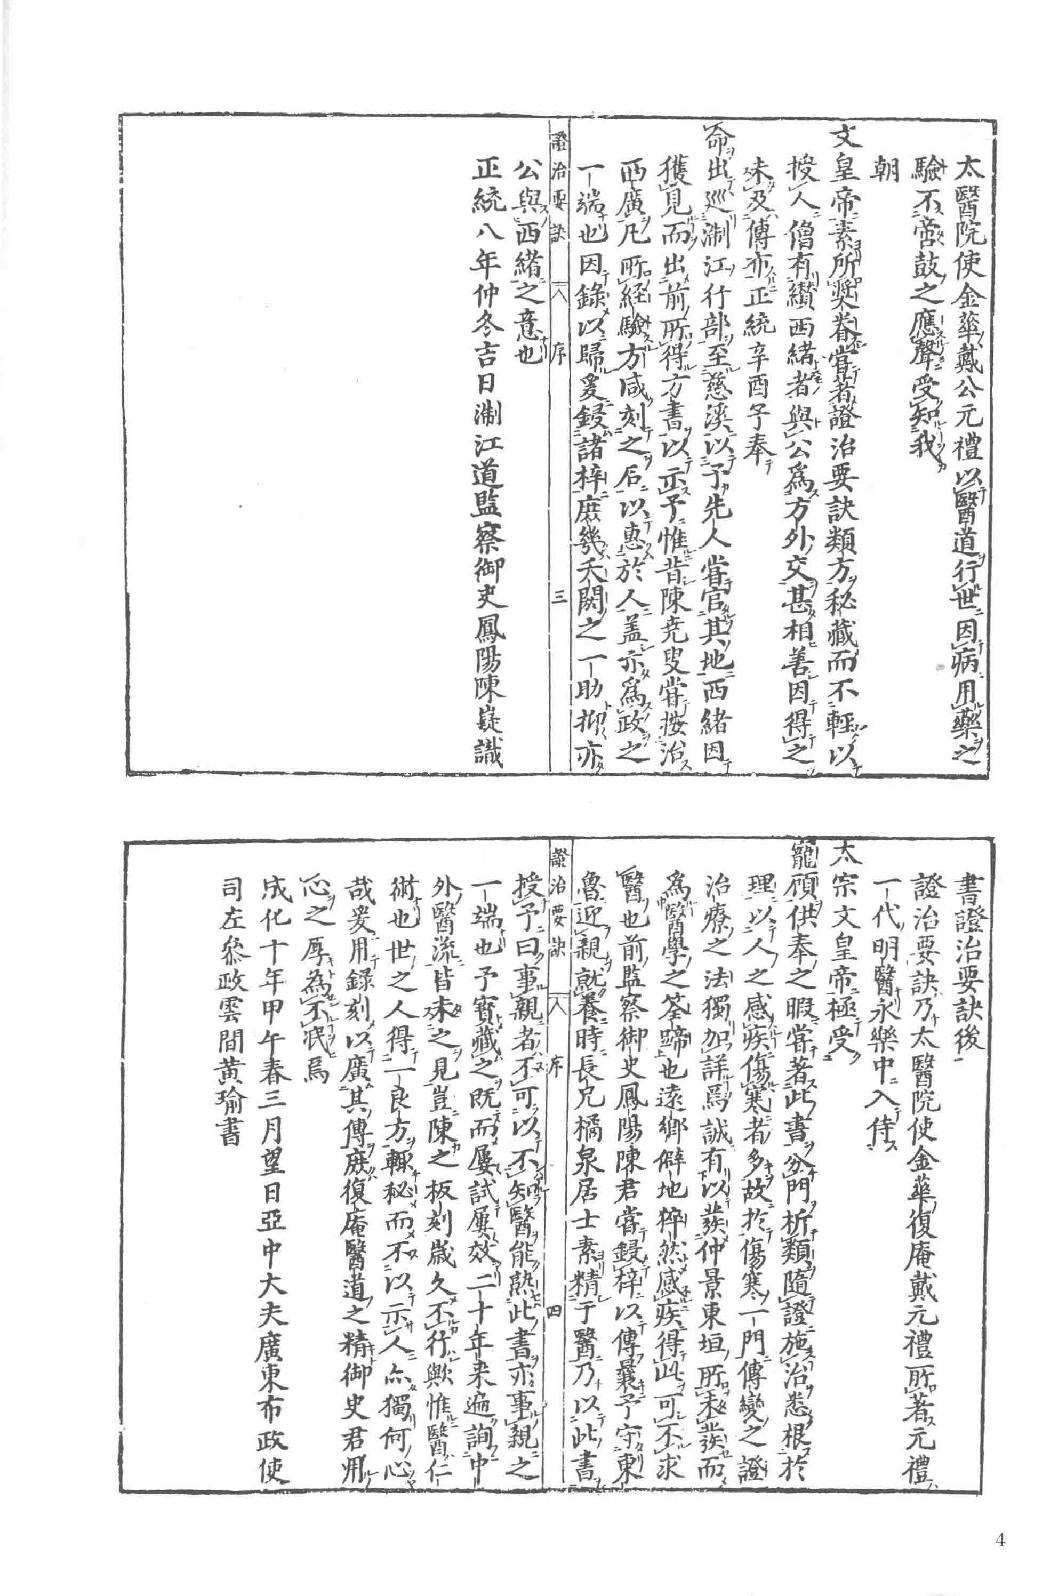 太醫院使金華戴公元禮以醫道行世因病用藥之
驗不啻鼓之應聲受知我
朝
文皇帝素所奬眷嘗著證治要訣類方秘藏而不輕以
授人僧有纉西緒者與公爲方外交甚相善因得之
未及傳亦正統辛酉予奉
命出巡淛江行部至慈溪以予先人嘗官其地西緒因
獲見而出前所得方書以示予惟昔陳堯叟嘗按治
西廣凡所經驗方咸刻之石以惠於人盖亦爲政之
一端也因錄以歸爰鋟諸梓庶幾夭閼之一助抑亦
證治要訣 八 序 三
公與西緒之意也
正統八年仲冬吉日淛江道監察御史鳳陽陳嶷識
書證治要訣後
證治要訣乃太醫院使金華復庵戴元禮所著元禮
一代明醫永樂中入侍
太宗文皇帝極受
寵顧供奉之暇嘗著此書分門析類隨證施治悉根於
理以人之感疾傷寒者多故於傷寒一門傳變之證
治療之法獨加詳焉誠有以發仲景東垣所未發而
爲醫學之筌蹄也遠鄉僻地猝然感疾得此可不求
醫也前監察御史鳳陽陳君嘗鋟梓以傳曩予守東
魯迎親就養時長兄橘泉居士素精于醫乃以此書
證治要訣 八 序 四
授予曰事親者不可以不知醫能熟此書亦事親之
一端也予寳藏之既而屢試屢效二十年来遍詢中
外醫流皆未之見豈陳之板刻歲久不行歟惟醫仁
術也世之人得一良方輒秘而不以示人亦獨何心
哉爰用錄刻以廣其傳庶復庵醫道之精御史君用
心之厚為不泯焉
成化十年甲午春三月望日亞中大夫廣東布政使
司左叅政雲間黄瑜書
4